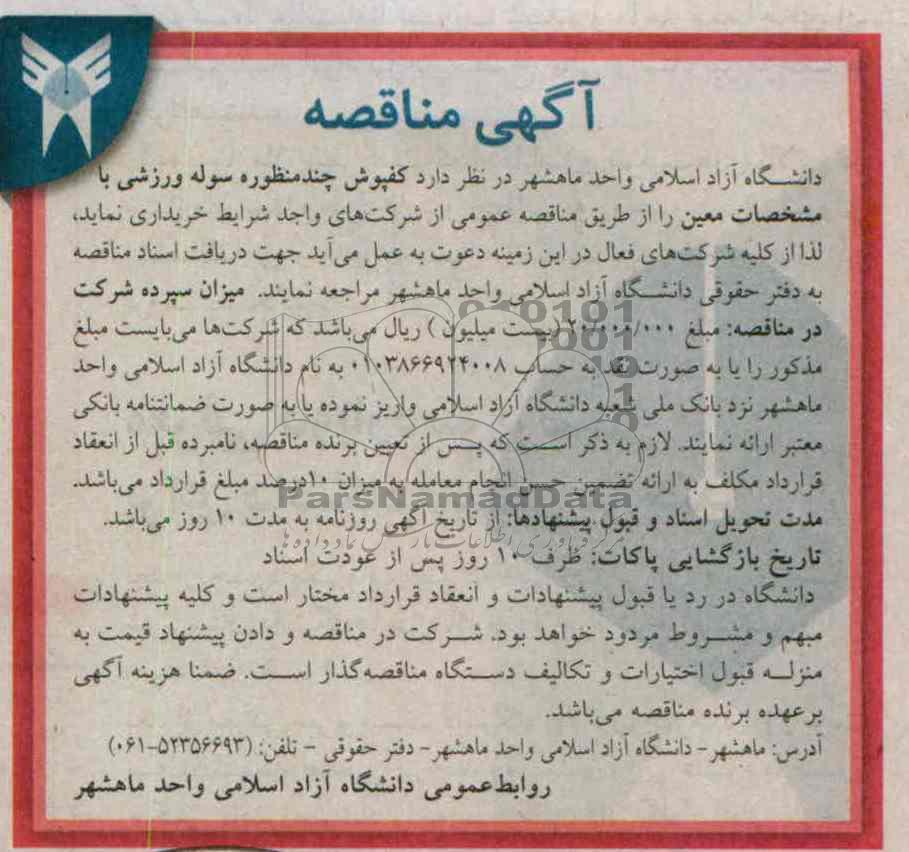 آگهی مناقصه
دانشگاه آزاد اسلامی واحد ماهشهر در نظر دارد کفپوش چندمنظوره سوله ورزشی با
مشخصات معین را از طریق مناقصه عمومی از شرکت‌های واجد شرایط خریداری نماید،
لذا از کلیه شرکت‌های فعال در این زمینه دعوت به عمل می‌آید جهت دریافت اسناد مناقصه
به دفتر حقوقی دانشگاه آزاد اسلامی واحد ماهشهر مراجعه نمایند. میزان سپرده شرکت
در مناقصه: مبلغ ۲۰/۰۰۰/۰۰۰ (بیست میلیون) ریال می‌باشد که شرکت‌ها می‌بایست مبلغ
مذکور را یا به صورت نقد به حساب ۰۱۰۳۸۶۶۹۲۴۰۰۸ به نام دانشگاه آزاد اسلامی واحد
ماهشهر نزد بانک ملی شعبه دانشگاه آزاد اسلامی واریز نموده یا به صورت ضمانتنامه بانکی
معتبر ارائه نمایند. لازم به ذکر است که پس از تعیین برنده مناقصه، نامبرده قبل از انعقاد
قرارداد مکلف به ارائه تضمین حسن انجام معامله به میزان ۱۰درصد مبلغ قرارداد می‌باشد.
ParsNamadData
مدت تحویل اسناد و قبول پیشنهادها: از تاریخ آگهی روزنامه به مدت ۱۰ روز می‌باشد.
تاریخ بازگشایی پاکات: ظرف ۱۰ روز پس از عودت اسناد
دانشگاه در رد یا قبول پیشنهادات و انعقاد قرارداد مختار است و کلیه پیشنهادات
مبهم و مشروط مردود خواهد بود. شرکت در مناقصه و دادن پیشنهاد قیمت به
منزله قبول اختیارات و تکالیف دستگاه مناقصه‌گذار است. ضمنا هزینه آگهی
برعهده برنده مناقصه می‌باشد.
آدرس: ماهشهر - دانشگاه آزاد اسلامی واحد ماهشهر - دفتر حقوقی - تلفن: (۵۲۳۵۶۶۹۳-۰۶۱)
روابط‌عمومی دانشگاه آزاد اسلامی واحد ماهشهر